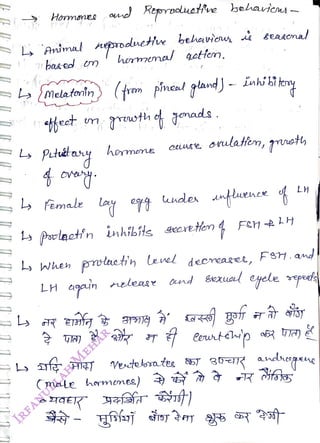 → Hormones and Reproductive behaviours -
↳ Animal reproductive behaviour is seasonal
based on hormonal action.
↳ Melatonin (from pineal gland) - Inhibitory
effect on growth of gonads.
↳ Pituitary hormone cause ovulation, growth
of ovary.
↳ Female lay egg under influence of LH
↳ Prolactin inhibits secretion of FSH & LH
↳ When prolactin level decreases, FSH. and
LH again release and sexual cycle repeats
↳ नर हार्मोन के अभाव में खस्सी मुर्गा न तो बाँग
दे पाता है और ना ही courtship कर पाता है
↳ यदि मादा vertebrates का उपचार androgens
(male hormones) से करें तो वे नर लैंगिक
व्यवहार प्रदर्शित करेंगी।
जैसे - मुर्गियां बाँग देना शुरू कर देगी